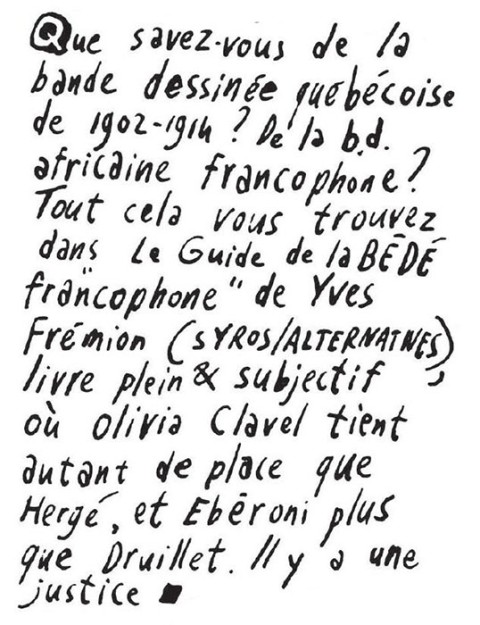 Que savez-vous de la
bande dessinée québécoise
de 1902-1914 ? De la b.d.
africaine francophone ?
Tout cela vous trouvez
dans "Le Guide de la BÉDÉ
francophone" de Yves
Frémion (SYROS/ALTERNATIVES),
livre plein & subjectif
où Olivia Clavel tient
autant de place que
Hergé, et Ebéroni plus
que Druillet. Il y a une
justice ■